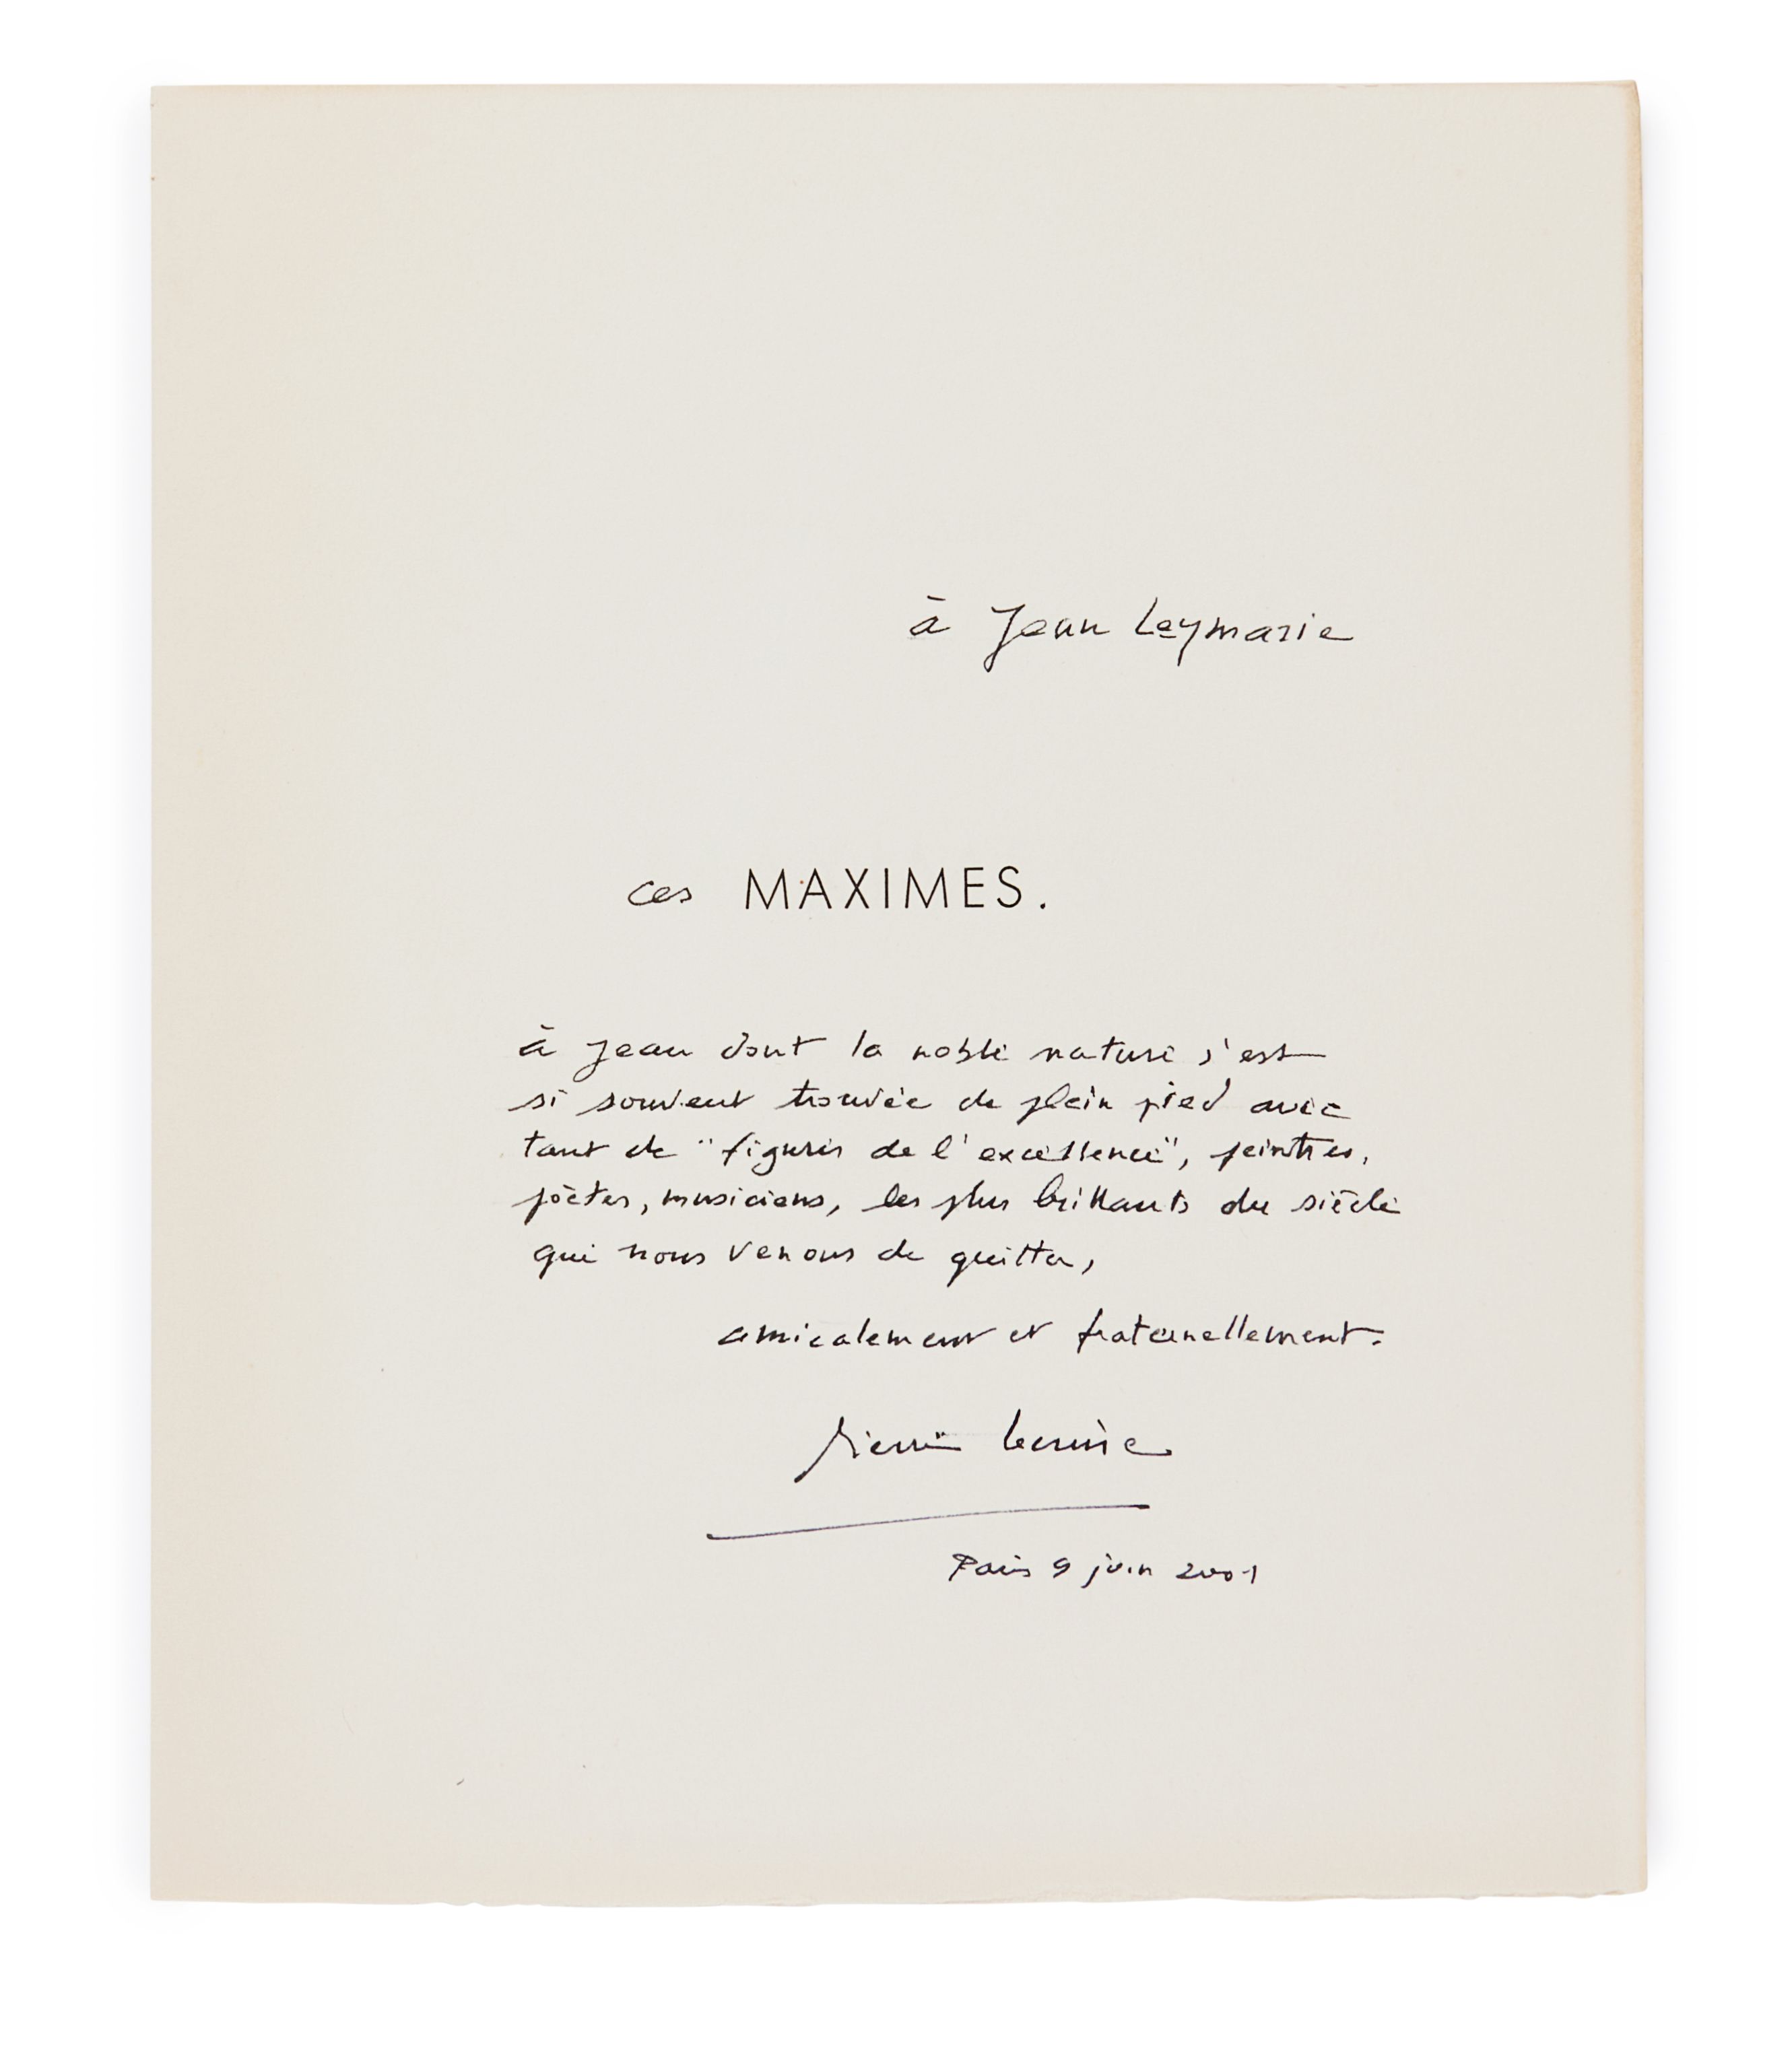 à Jean Leymarie
ces MAXIMES.
à Jean dont la noble nature s'est
si souvent trouvée de plein pied avec
tant de "figures de l'excellence", peintres,
poètes, musiciens, les plus brillants du siècle
que nous venons de quitter,
amicalement et fraternellement.
Pierre Lecuire
Paris 9 juin 2001